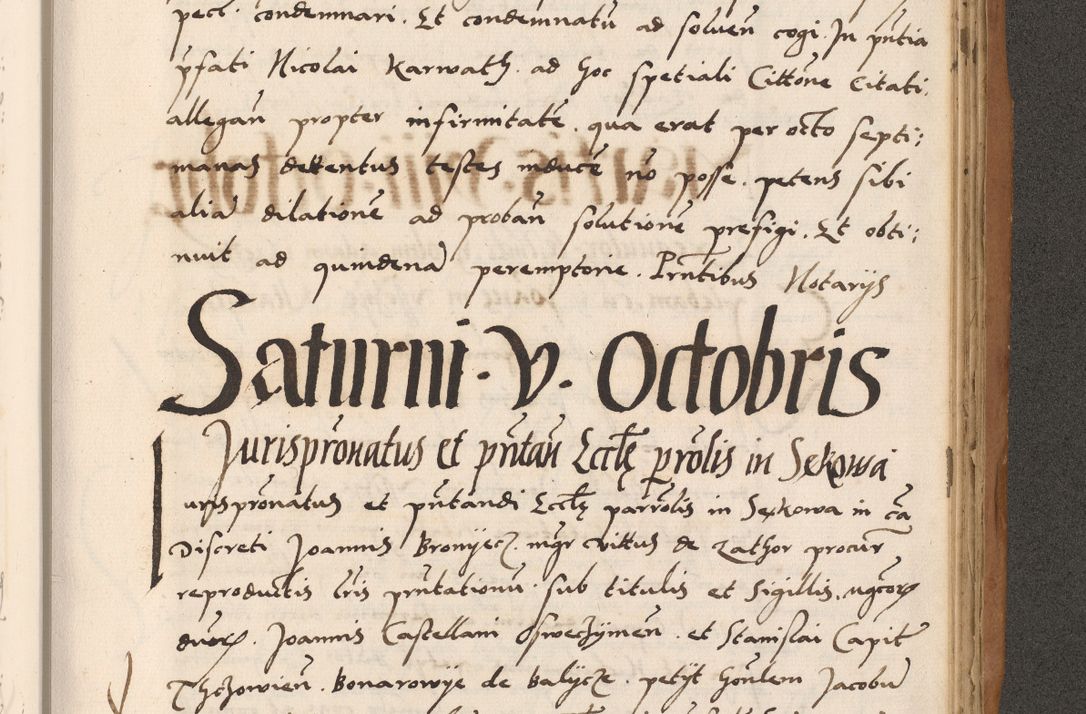 pect. condemnari. Et condemnatū ad solueñ cogi. In p̃ntia
p̃fati Nicolai Karwath. ad hoc spetiali Cittõne Citati.
allegañ propter infirmitatẽ. qua erat per octo septi:
manas detentus testes inducẽ nõ posse. petens sibi
aliã dilationẽ ad probañ solutionẽ prefigi. Et obti:
nuit ad quindenã peremptorie. Prñtibus Notarijs
Saturni · V · Octobris
Jurisprõnatus et p̃ntañ Eccl̃ę par̃olis in Sękowa
urisprõnatus et p̃ntandi Eccl̃ę parr̃olis in Sękowa in cã
Discreti Joannis Bronyecz. mgr̃ cuittus de Zathor procur̃
reproductis l̃ris pñtationũ. sub titulis et Sigillis. mgcorꝝ
duorꝝ. Joannis Castellani Osweczymeñ. et Stanislai Capit̃
Thczowieñ. Bonarowye de Balycze. petijt hõulem Jacobũ